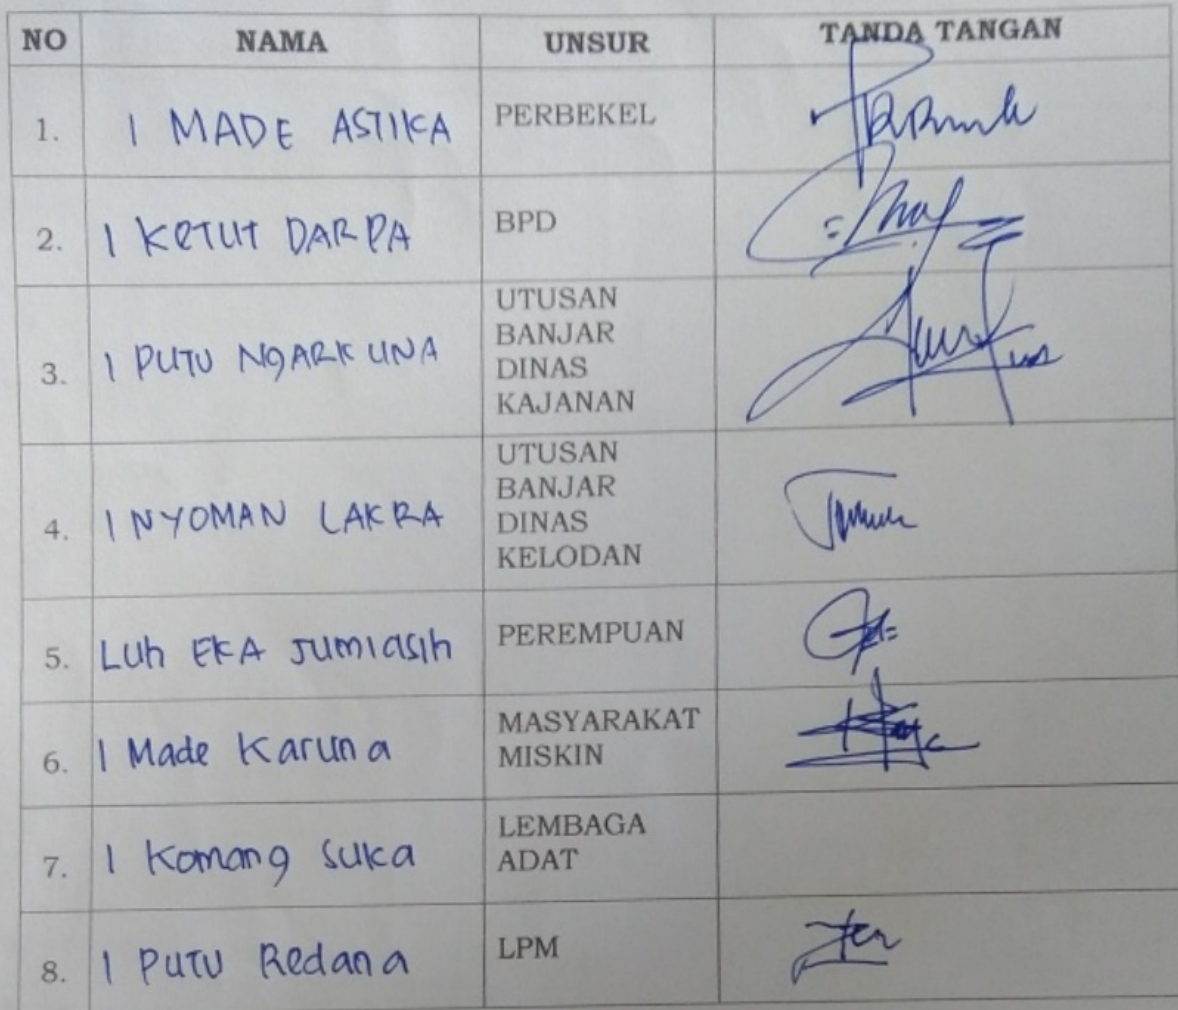 NO NAMA UNSUR TANDA TANGAN
1. I MADE ASTIKA PERBEKEL
2. I KETUT DARPA BPD
3. I PUTU NGARKUNA UTUSAN
BANJAR
DINAS
KAJANAN
4. I NYOMAN LAKRA UTUSAN
BANJAR
DINAS
KELODAN
5. LUh EKA JUmIasIh PEREMPUAN
6. I Made Karuna MASYARAKAT
MISKIN
7. I Komang Suka LEMBAGA
ADAT
8. I PUTU Redana LPM